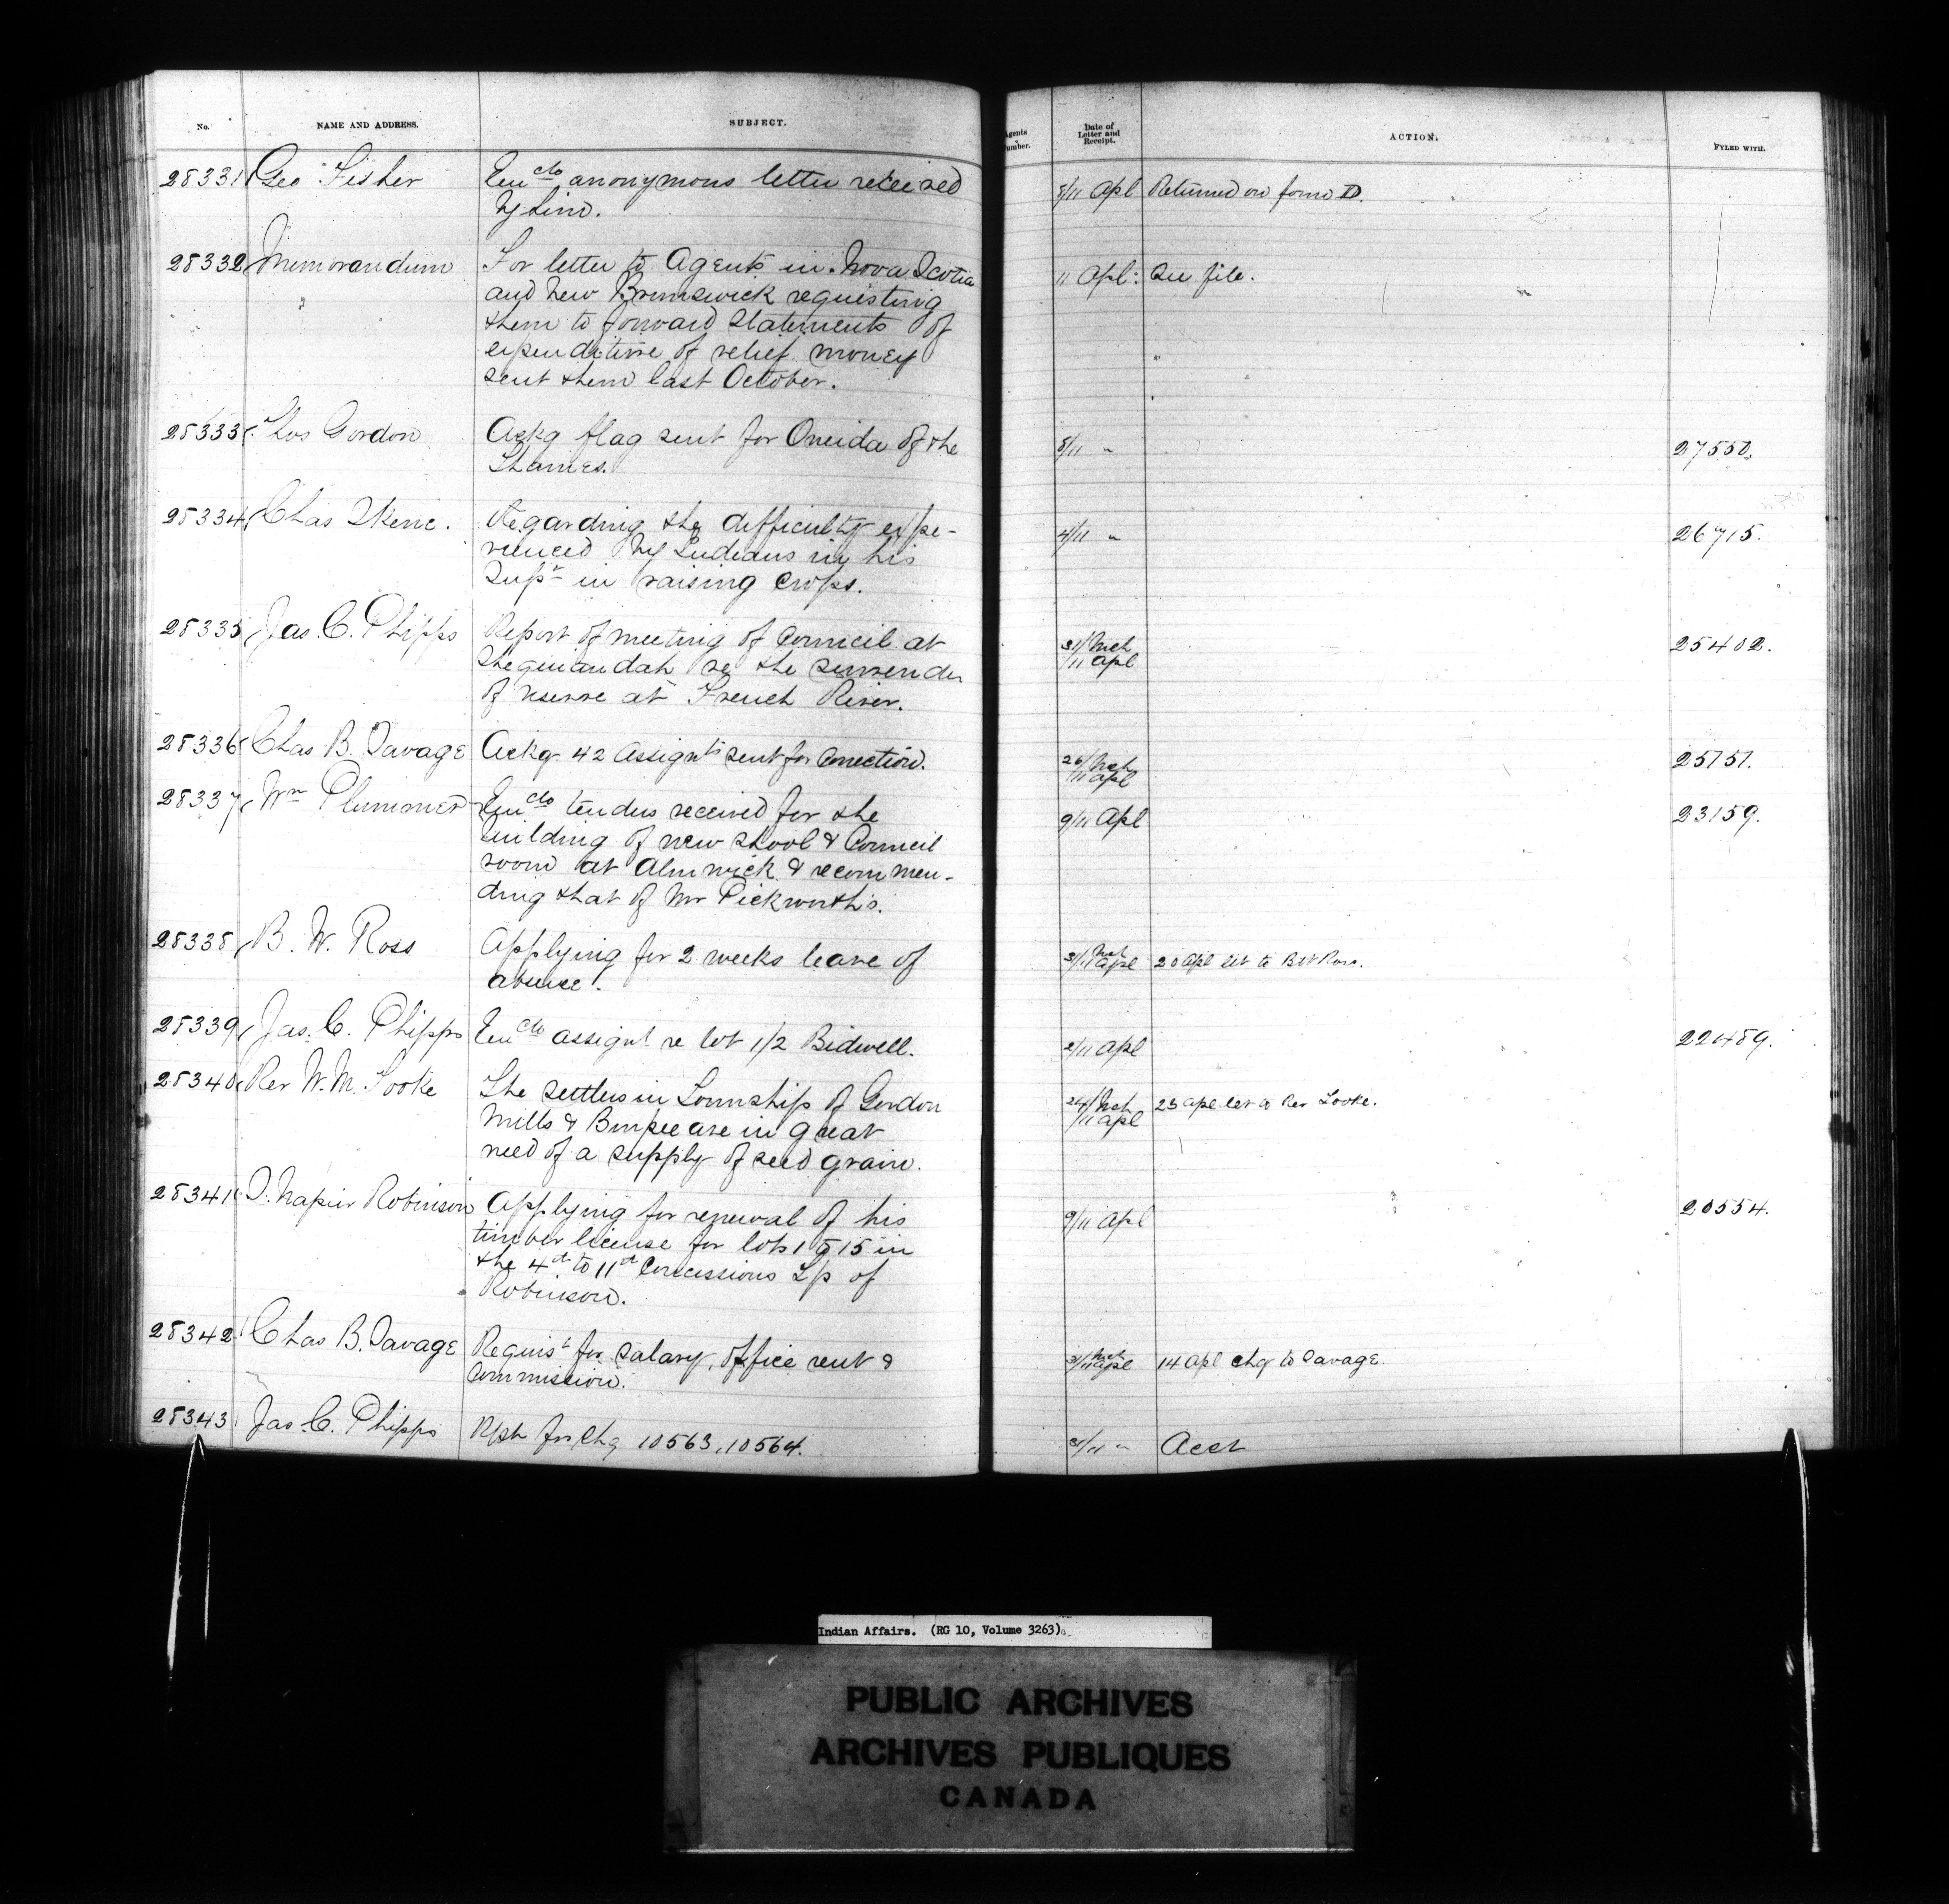 No. NAME AND ADDRESS. SUBJECT. Agents Number. Date of Letter and Receipt. ACTION. FYLED WITH.
28331 Geo Fisher Encclo anonymous letter received 8/11 Apl Returned on form D.
by him.
28332 Memorandum For letter to Agents in Nova Scotia 11 Apl: See file.
and New Brunswick requesting
them to forward statements of
expenditure of relief money
sent them last October.
28333 Thos Gordon Ackg flag sent for Oneida of the 8/11 " 27550.
Thames.
28334 Chas Skene. Regarding the difficulty expe- 4/11 " 26715.
rienced by Indians in his
Supt in raising crops.
28335 Jas. C. Phipps Report of meeting of Council at 31/Mch 25402.
Sheguiandah re the surrender /11 Apl
of reserve at French River.
28336 Chas B. Savage Ackg 42 Assignts sent for Correction. 26/Mch 25751.
/11 Apl
28337 Wm Plummer Encclo tenders received for the 9/11 Apl 23159.
building of new shool & Council
room at Alnwick & recommen-
ding that of Mr Pickworth's.
28338 B. W. Ross Applying for 2 weeks leave of 31/Mch /11 Apl 20 Apl let to BW Ross.
absence.
28339 Jas. C. Phipps Encclo assignt re lot 1/2 Bidwell. 2/11 Apl 22489.
28340 Rev W. M. Tooke The settlers in Township of Gordon 24/Mch 23 Apl let to Rev Tooke.
Mills & Burpee are in great /11 Apl
need of a supply of seed grain.
28341 S. Napier Robinson Applying for renewal of his 9/11 Apl 20554.
timber license for lots 1 to 15 in
the 4th to 11th Concessions T/p of
Robinson.
28342 Chas B. Savage Requist for salary, office rent & 31/Mch /11 Apl 14 Apl chq to Savage.
Commission.
28343 Jas. C. Phipps Rpts for Chq 10563, 10564. 31/11 " Acct
Indian Affairs. (RG 10, Volume 3263)
PUBLIC ARCHIVES
ARCHIVES PUBLIQUES
CANADA